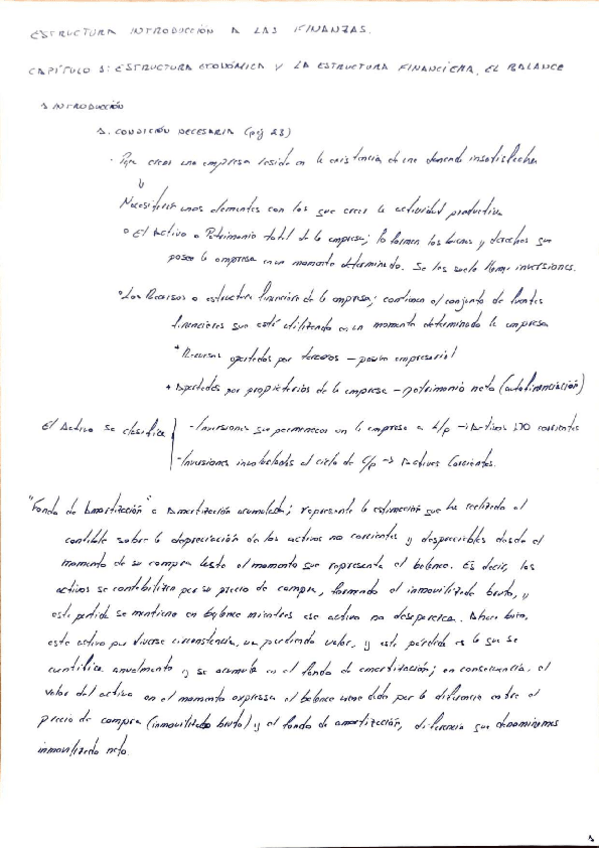 ESTRUCTURA INTRODUCCIÓN A LAS FINANZAS.
CAPÍTULO 1: ESTRUCTURA ECONÓMICA Y LA ESTRUCTURA FINANCIERA, EL BALANCE
1 INTRODUCCIÓN
1. CONDICIÓN NECESARIA (pág 23)
· Para crear una empresa reside en la existencia de una demanda insatisfecha
↓
Necesitarán unos elementos con los que crear la actividad productiva
o El Activo o Patrimonio total de la empresa; lo forman los bienes y derechos que
posee la empresa en un momento determinado. Se les suele llamar inversiones.
o Los Recursos o estructura financiera de la empresa; contienen el conjunto de fuentes
financieras que está utilizando en un momento determinado la empresa
* Recursos aportados por terceros – pasivo empresarial
* Aportados por propietarios de la empresa – patrimonio neto (autofinanciación)
El Activo se clasifica - Inversiones que permanecen en la empresa a L/p → Activos NO corrientes
- Inversiones involucradas al ciclo de C/p → Activos Corrientes.
"Fondo de Amortización" o Amortización acumulada; representa la estimación que ha realizado el
contable sobre la depreciación de los activos no corrientes y depreciables desde el
momento de su compra hasta el momento que representa el balance. Es decir, los
activos se contabilizan por su precio de compra, formando el inmovilizado bruto, y
esta partida se mantiene en balance mientras ese activo no desaparezca. Ahora bien,
este activo por diversas circunstancias, va perdiendo valor, y esta pérdida es lo que se
cuantifica anualmente y se acumula en el fondo de amortización; en consecuencia, el
valor del activo en el momento expresa el balance viene dado por la diferencia entre el
precio de compra (inmovilizado bruto) y el fondo de amortización, diferencia que denominamos
inmovilizado neto.
1